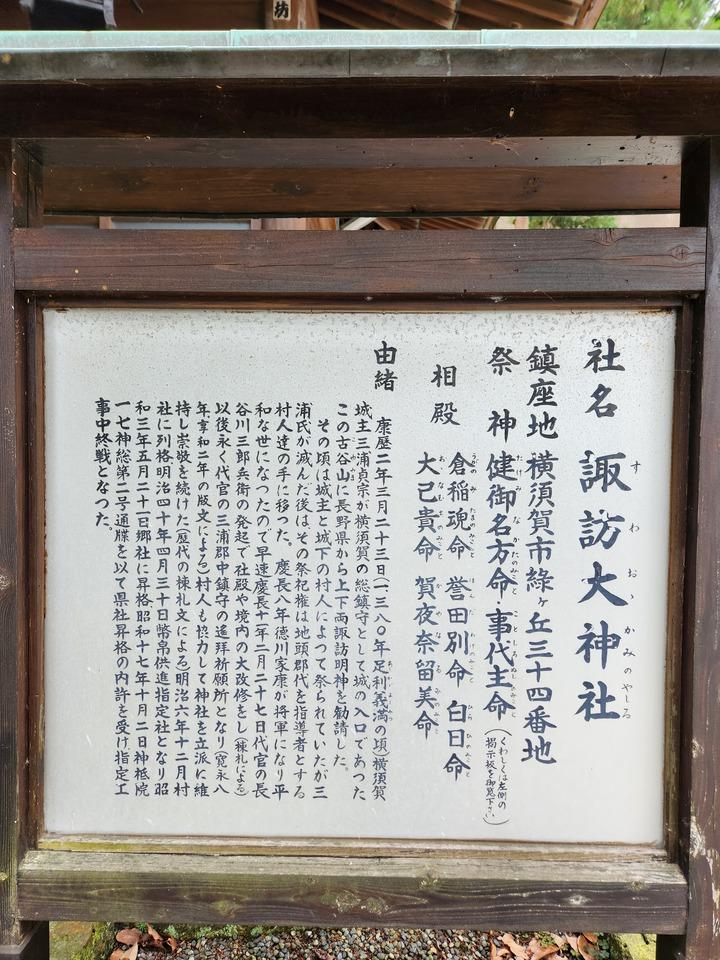 社名 諏訪大神社
すわおゝかみのやしろ
鎮座地 横須賀市緑ヶ丘三十四番地
祭神 健御名方命・事代主命
(くわしくは左側の
掲示板を御覧下さい)
相殿 倉稲魂命 誉田別命 白日命
大己貴命 賀夜奈留美命
由緒
康歴二年三月二十三日(一三八〇年足利義満の頃)横須賀
城主三浦貞宗が横須賀の総鎮守として城の入口であつた
この古谷山に長野県から上下両諏訪明神を勧請した。
その頃は城主と城下の村人によつて祭られていたが三
浦氏が滅んだ後は、その祭祀権は地頭郡代を指導者とする
村人達の手に移つた。慶長八年徳川家康が将軍になり平
和な世になつたので早速慶長十年二月二十七日代官の長
谷川三郎兵衛の発起で社殿や境内の大改修をし(棟札による)
以後永く代官の三浦郡中鎮守の遙拝祈願所となり(寛永八
年享和二年の版文による)村人も協力して神社を立派に維
持し崇敬を続けた(歴代の棟札文による)明治六年十二月村
社に列格明治四十年四月三十日幣帛供進指定社となり昭
和三年五月二十一日郷社に昇格昭和十七年十月二日神祇院
一七神総第二号通牒を以て県社昇格の内許を受け指定工
事中終戦となつた。